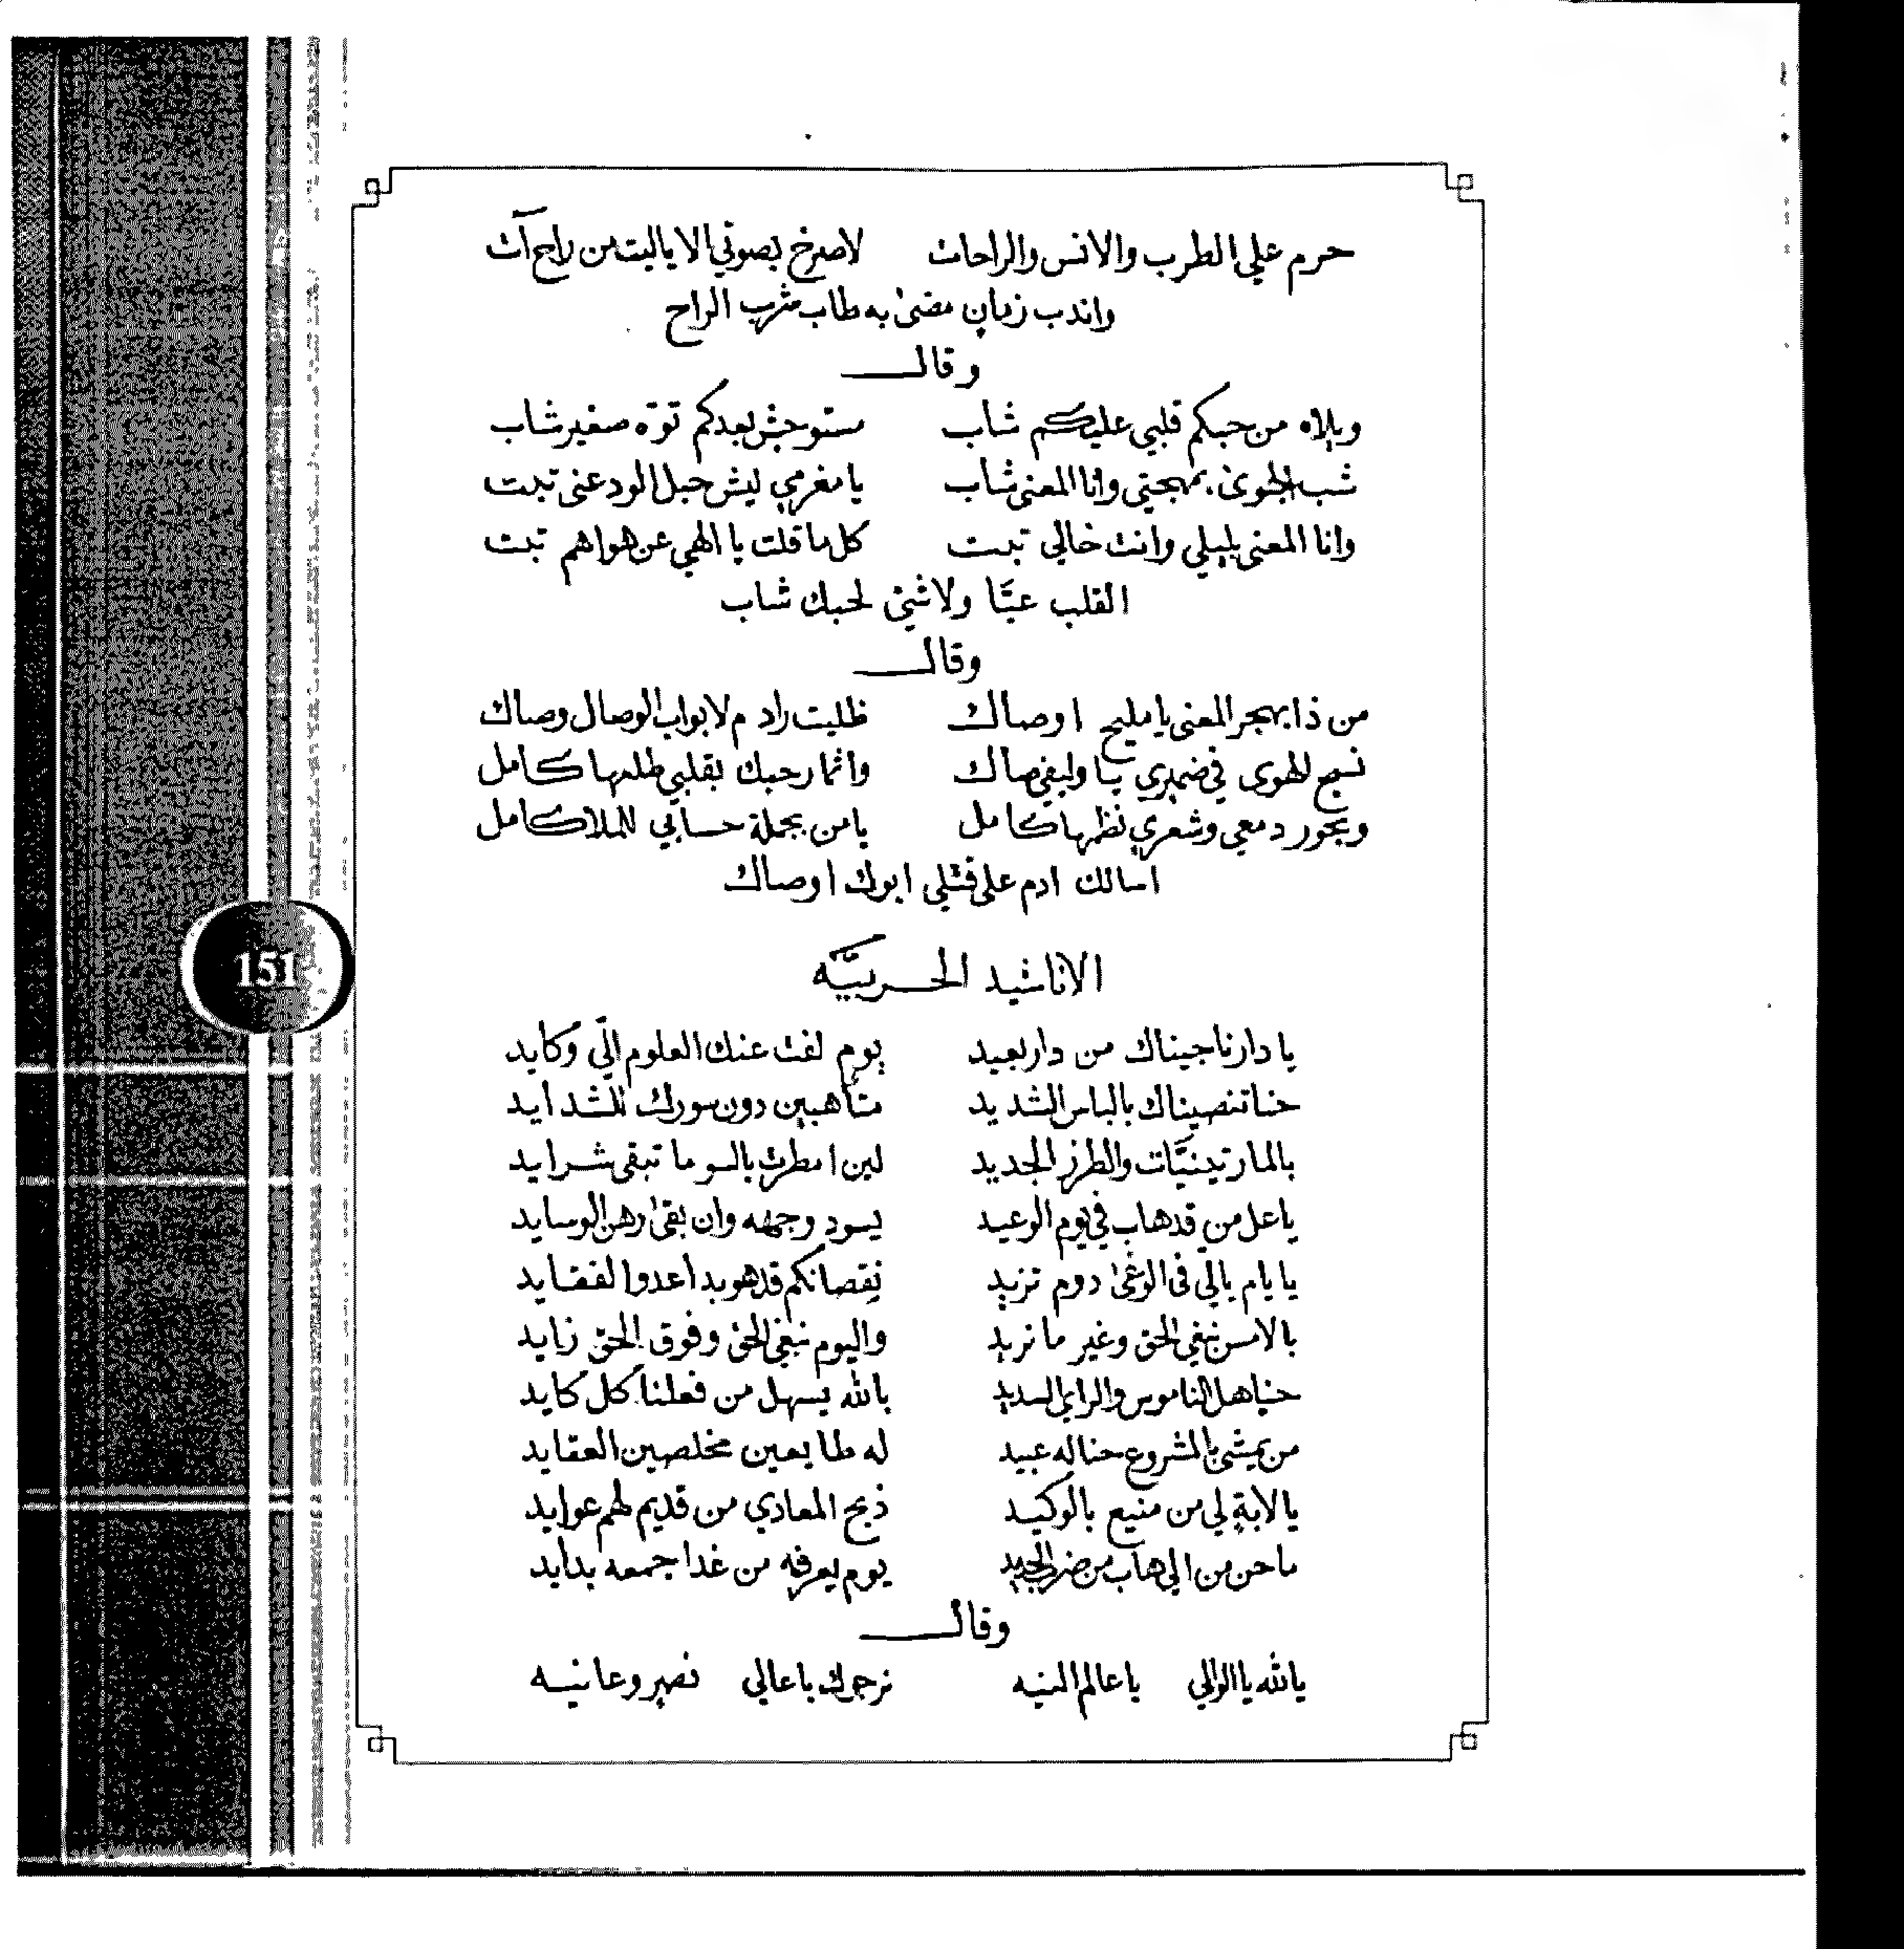 حرم علي الطرب والانس والراحات لاصرخ بصوتي الا ياليت من راح آت
واندب زمان مضىٰ به طاب شرب الراح
وقال
ويلاه من حبكم قلبي عليكم شاب مستوحش بعدكم توّه صغير شاب
شب الجوىٰ بمهجتي وانا المعنى شاب يا مغرمي ليش حبل الود عني تبت
وانا المعنى بليلي وانت خالي تبت كل ما قلت يا الهي عن هواهم تبت
القلب عيَّا ولا شيٍ لحبك شاب
وقال
من ذا بهجر المعنى يا مليح اوصاك ظليت رادم لابواب الوصال وصاك
نسج الهوى في ضميري يا وليفي صاك واثمار حبك بقلبي طلعها كامل
وبحور دمعي وشعري نظمها كامل يا من بجملة حسابي للملا كامل
اسالك ادم على قتلي ابوك اوصاك
الاناشيد الحربيَّه
يا دارنا جيناك من دار بعيد يوم لفت عنك العلوم الّي وكايد
حنا تنصيناك بالباس الشديد متأهبين دون سورك للشدايد
بالمارتينيَّات والطرز الجديد لين امطرت بالسو ما تبقى شرايد
يا عل من قد هاب في يوم الوعيد يسود وجهه وان بقىٰ رهن الوسايد
يا يام يالي في الوغىٰ دوم تزيد نقصانكم قد هو بد اعدوا لفقايد
بالامس نبغي الحق وغير ما نريد واليوم نبغي الحق وفوق الحق زايد
حنا هل الناموس والراي السديد بالله يسهل من فعلنا كل كايد
من يمشي بالمشروع حنا له عبيد له طايعين مخلصين العقايد
يا لابةٍ لي من منيع بالوكيد ذبح المعادي من قديم لهم عوايد
ما حن من الي هاب من ضرب الحديد يوم يعرفه من غدا جمعه بدايد
وقال
يالله يا الوالي يا عالم النيه نرجوك يا عالي نصر وعانيه
151